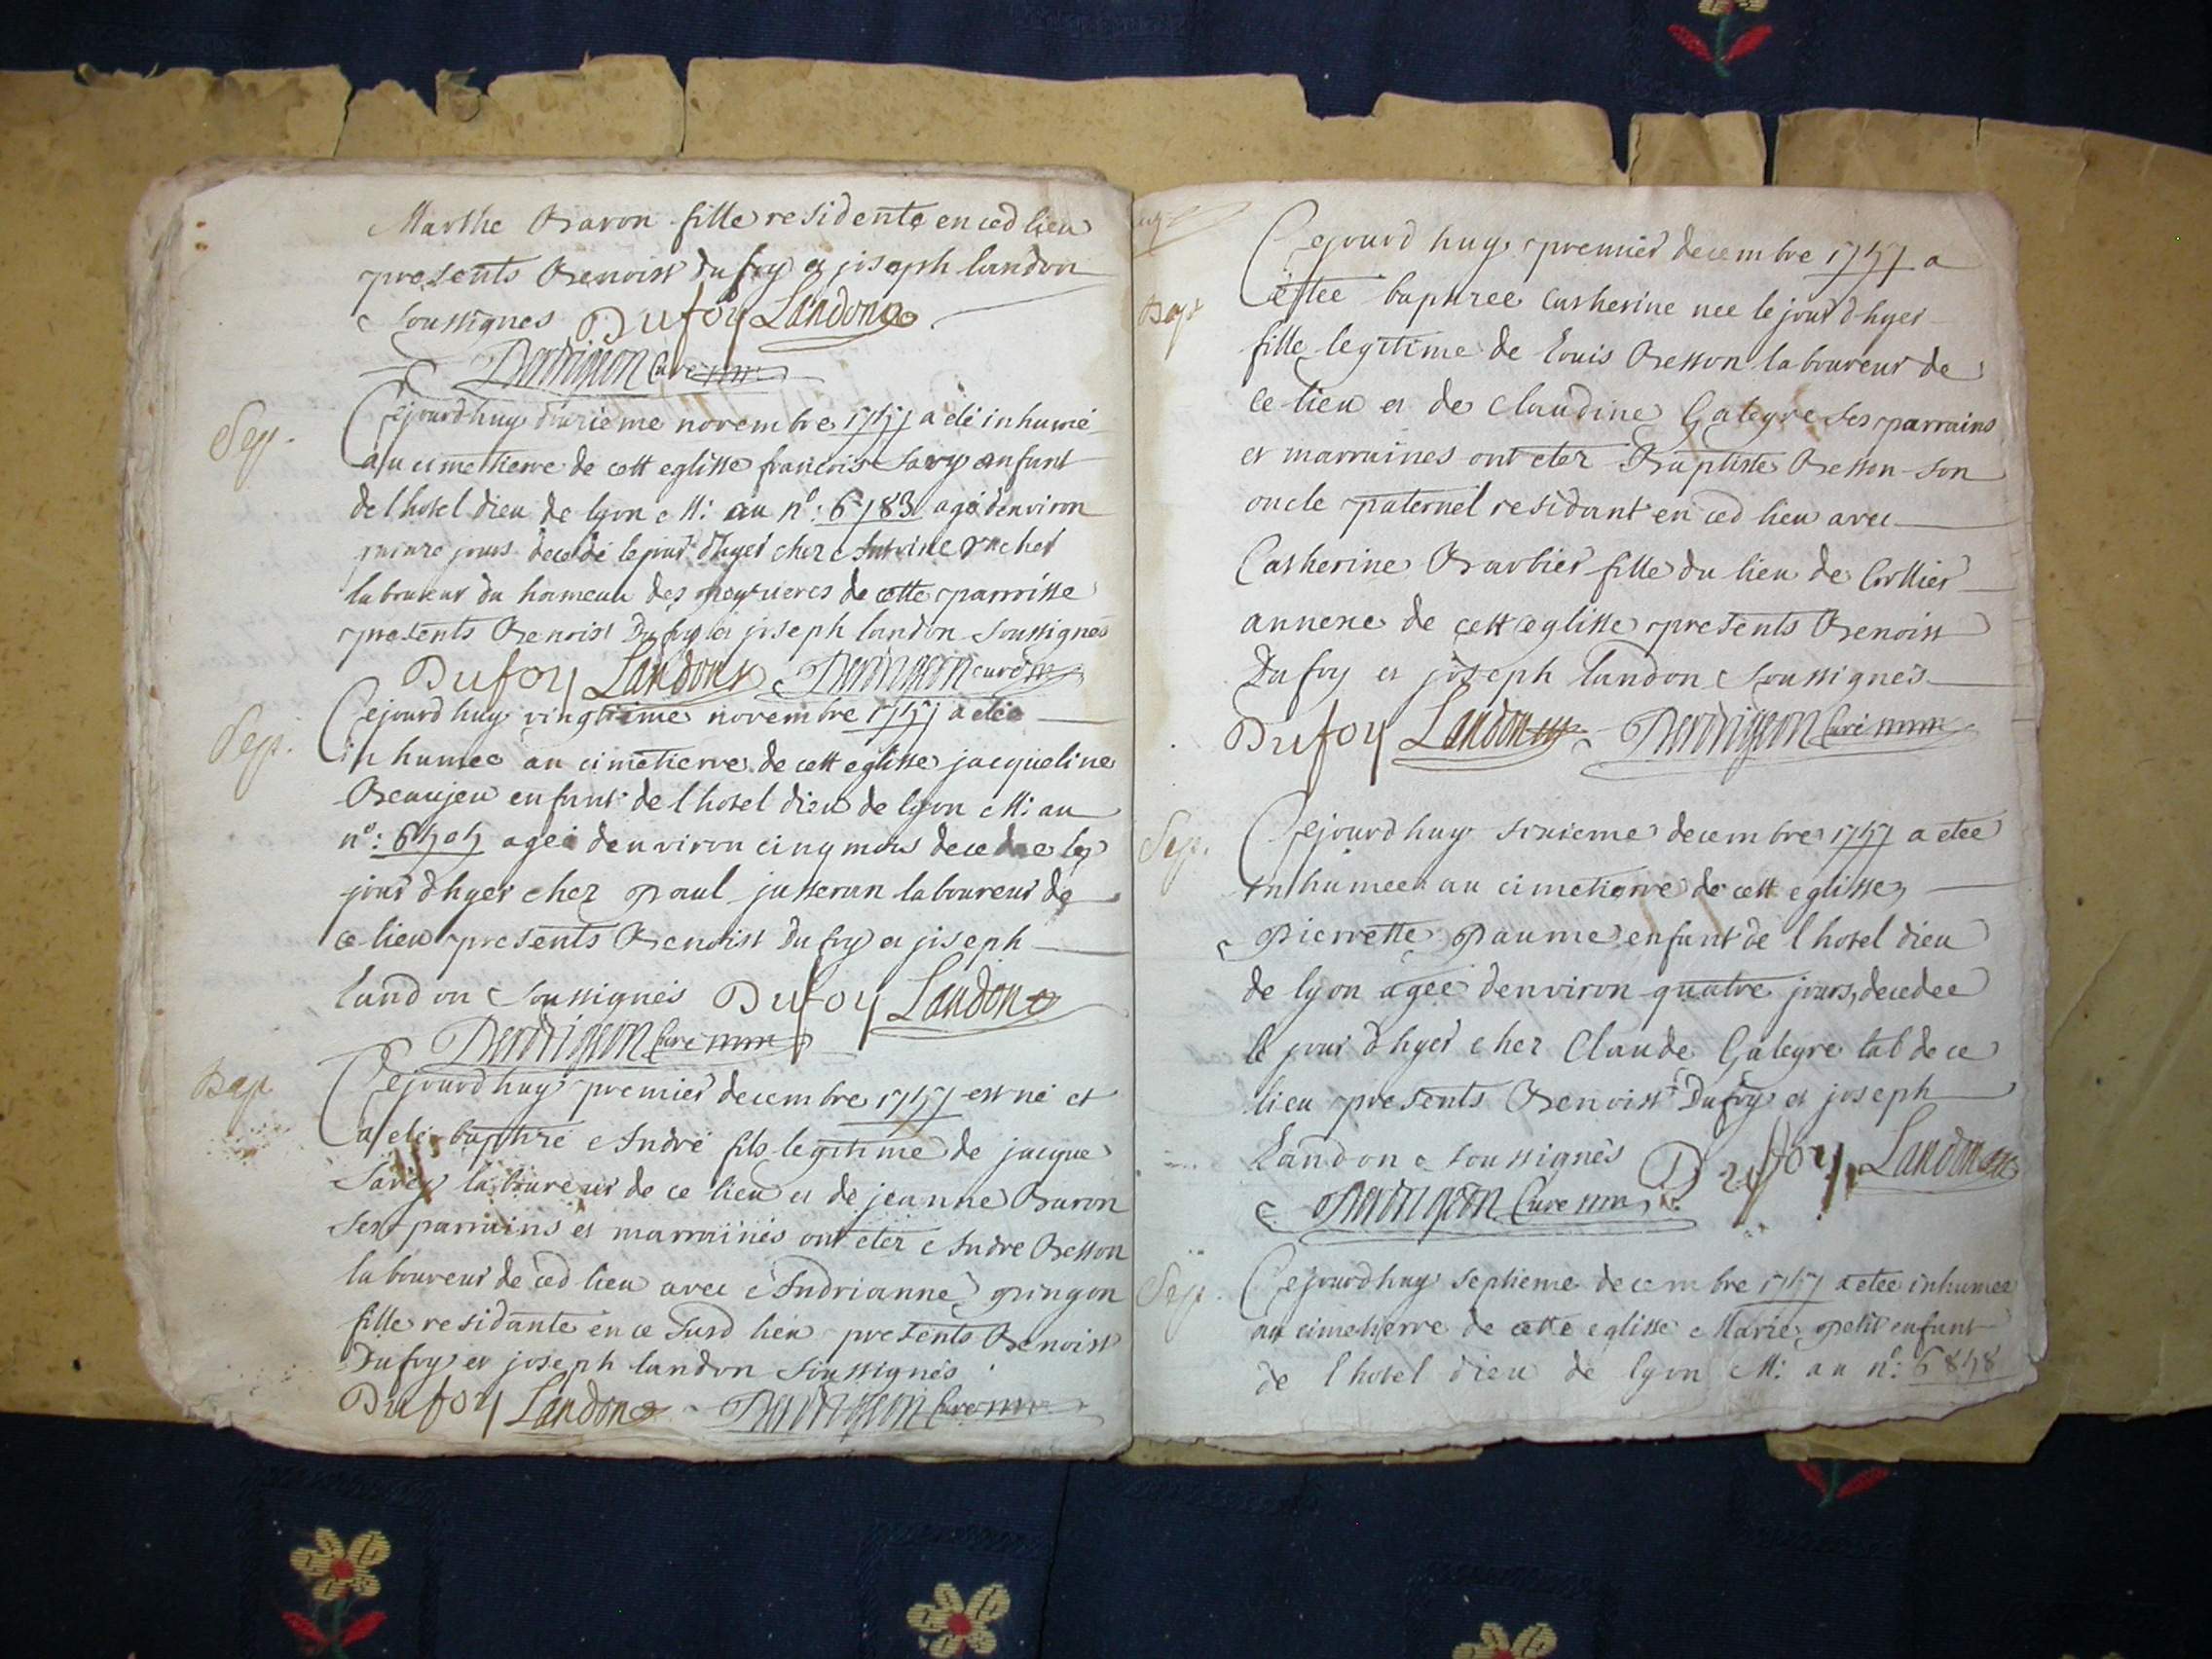 Marthe Baron fille residente en ced lieu
presents Benoist dufoy et joseph landon
soussignes Dufoy Landon
Curé
Sep.
Cejourdhuy dixieme novembre 1757 a été inhumé
au cimetierre de cett eglisse francois Savy enfant
de l hotel dieu de lyon M: au n°: 6783 agé denviron
quinze jours decedé le jour d'hyer chez Antoine
laboureur du hameau des de cette parroisse
presents Benoist Dufoy et joseph landon soussignés
Dufoy Landon curé
Sep.
Cejourd huy vingtieme novembre 1757 a etée
inhumee au cimetierre de cett eglisse jacqueline
Beaujeu enfant de l hotel dieu de lyon M: au
n°: 6505 agée denviron cinq mois decedee le
jour d hyer chez Paul jusseran laboureur de
ce lieu presents Benoist Dufoy et joseph
landon soussignés Dufoy Landon
Curé
Bap
Cejourd huy premier decembre 1757 est né et
a été baptizé André fils legitime de jacque
Savey laboureur de ce lieu et de jeanne Baron
ses parrains et marraines ont etez Andre Besson
laboureur de ced lieu avec Andrianne pingon
fille residante en ce susd lieu presents Benoist
Dufoy et joseph landon soussignés
Dufoy Landon Curé
Cejourd huy premier decembre 1757 a
Bapt
etee baptizee Catherine nee le jour d hyer
fille legitime de Louis Besson laboureur de
ce lieu et de Claudine Galeyre ses parrains
et marraines ont etez Baptiste Besson son
oncle paternel residant en ced lieu avec
Catherine Barbier fille du lieu de Cordieu
annexe de cett eglisse presents Benoist
Dufoy et joseph landon soussignés
Dufoy Landon Curé
Sep.
Cejourd huy sixieme decembre 1757 a etee
inhumee au cimetierre de cett eglisse
Pierrette Paume enfant de l hotel dieu
de lyon agée denviron quatre jours, decedee
le jour d hyer chez Claude Galeyre lab de ce
lieu presents Benoist Dufoy et joseph
Landon soussignés Dufoy Landon
Curé
Sep.
Cejourdhuy septieme decembre 1757 a etee inhumee
au cimetierre de cette eglisse Marie petit enfant
de l hotel dieu de lyon M: au n°: 6858